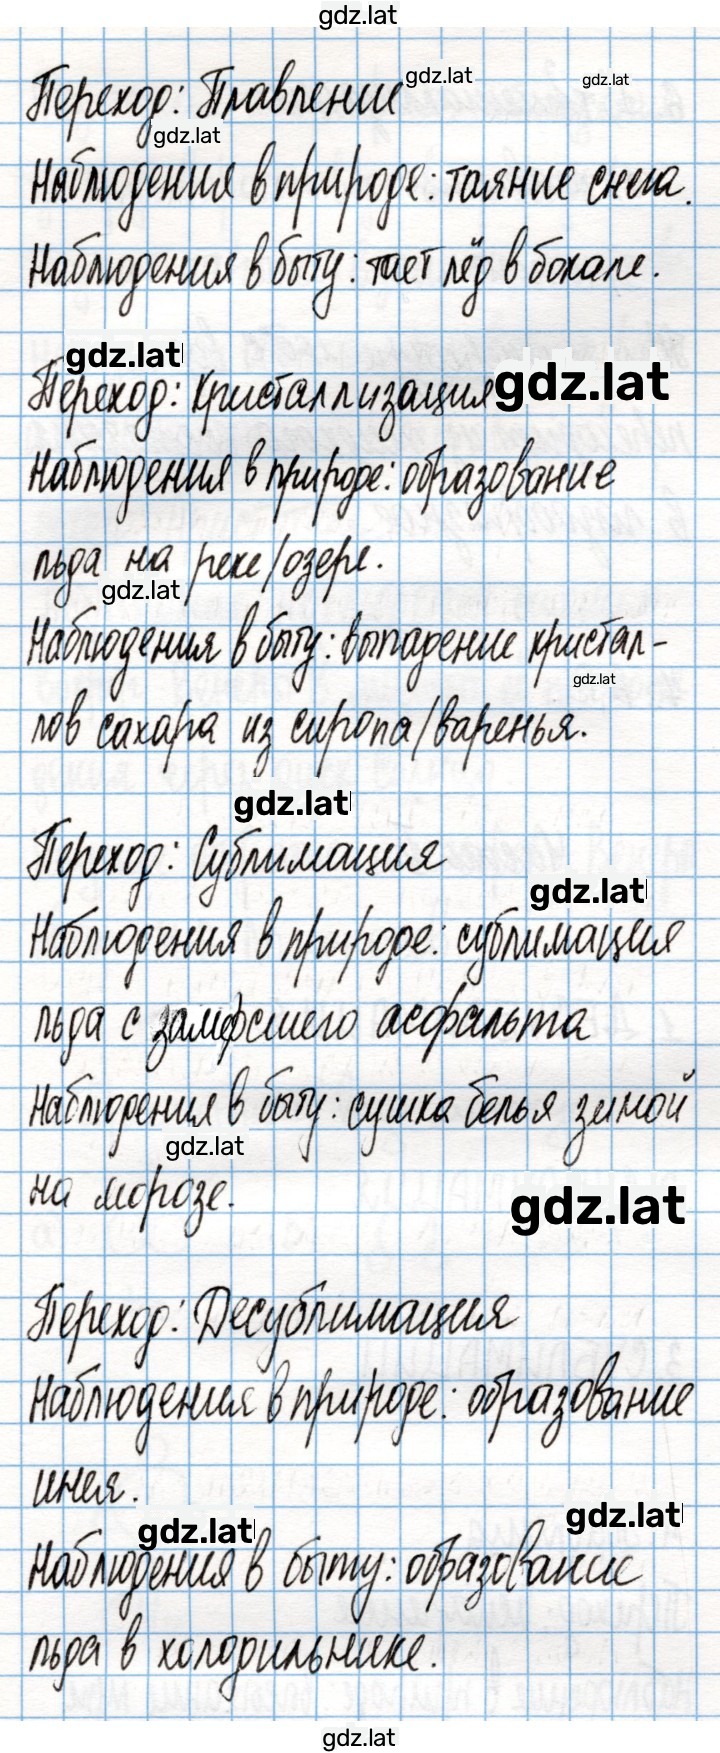 gdz.lat
Переход: Плавление gdz.lat gdz.lat
gdz.lat
Наблюдения в природе: таяние снега.
Наблюдения в быту: тает лёд в бокале.
gdz.lat
Переход: Кристаллизация gdz.lat
Наблюдения в природе: образование
льда на реке/озере.
gdz.lat
Наблюдения в быту: выпадение кристал-
gdz.lat
лов сахара из сиропа/варенья.
gdz.lat
Переход: Сублимация
gdz.lat
Наблюдения в природе: сублимация
льда с замёрзшего асфальта
Наблюдения в быту: сушка белья зимой
gdz.lat
на морозе.
gdz.lat
Переход: Десублимация
Наблюдения в природе: образование
инея.
gdz.lat
gdz.lat
Наблюдения в быту: образование
льда в холодильнике.
gdz.lat